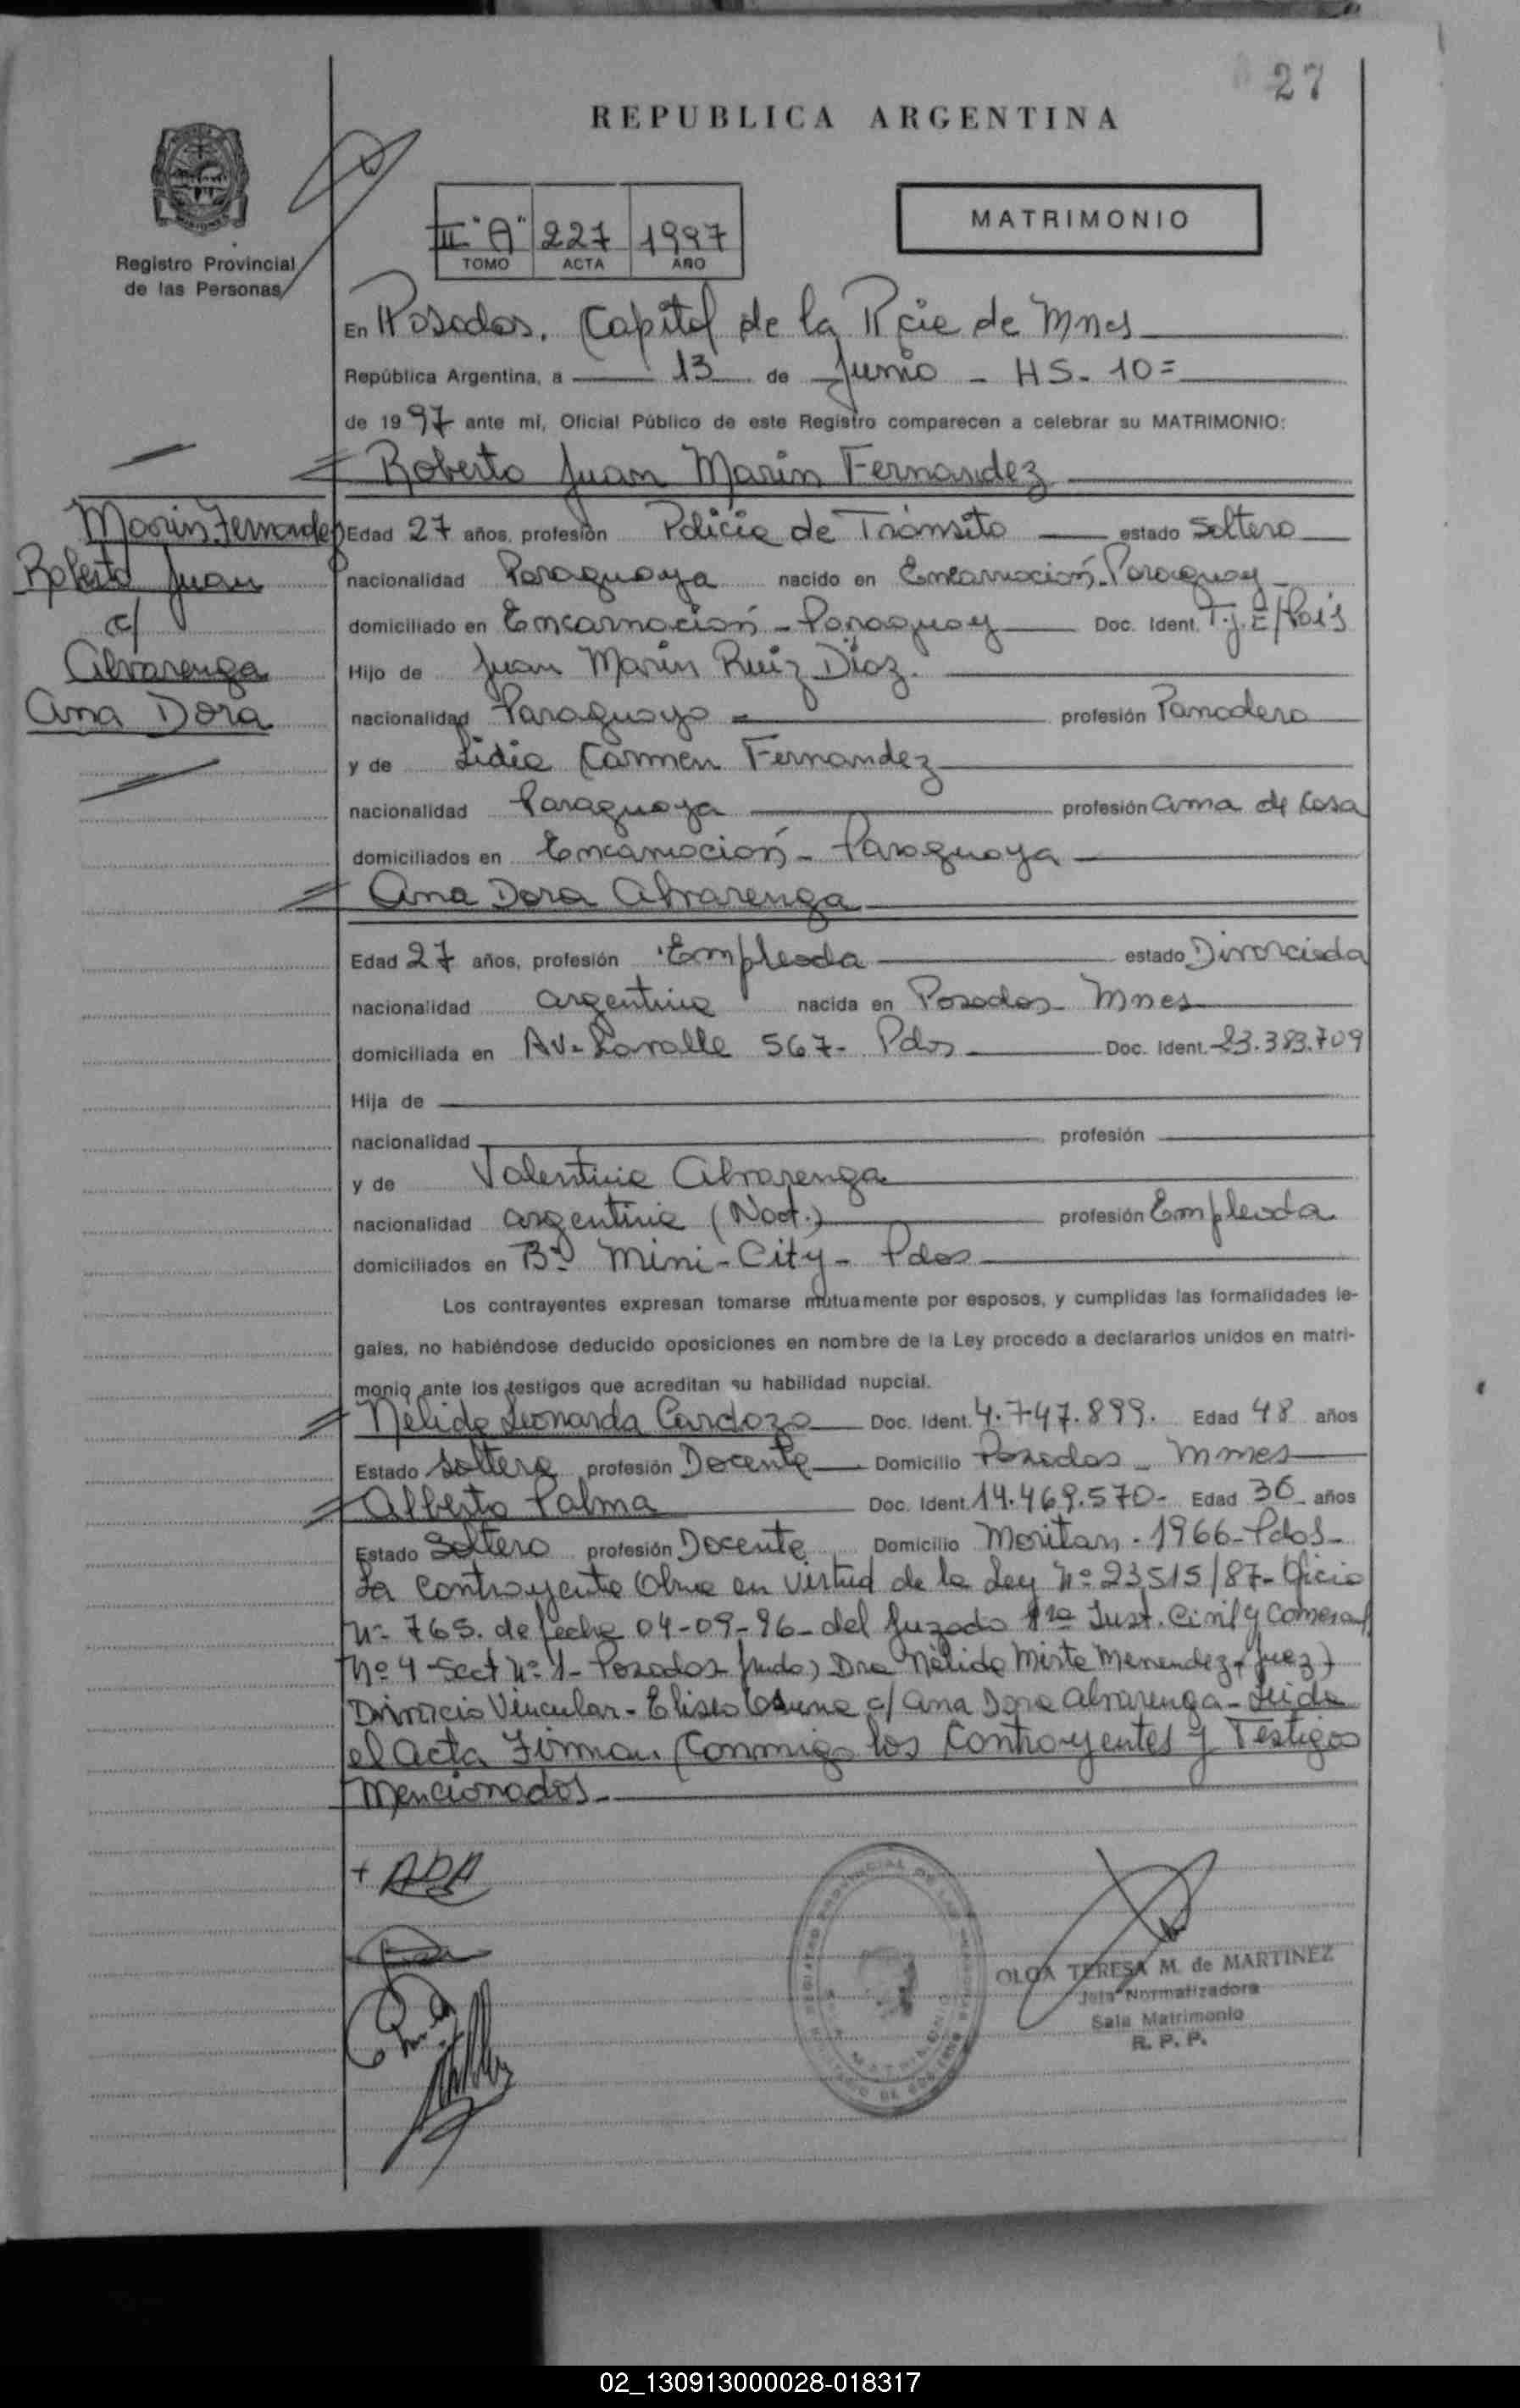 27
REPUBLICA ARGENTINA
II "A" 227 1997
TOMO ACTA AÑO
MATRIMONIO
Registro Provincial
de las Personas
En Posadas, Capital de la Pcia de Mnes
República Argentina, a 13 de Junio - HS. 10=
de 1997 ante mí, Oficial Público de este Registro comparecen a celebrar su MATRIMONIO:
Roberto Juan Marin Fernandez
Marin Fernandez
Roberto Juan
c/
Alvarenga
Ana Dora
Edad 27 años, profesión Policia de Tránsito estado Soltero
nacionalidad Paraguaya nacido en Encarnación-Paraguay
domiciliado en Encarnación - Paraguay Doc. Ident. T.j.E/País
Hijo de Juan Marin Ruiz Diaz.
nacionalidad Paraguayo profesión Panadero
y de Lidia Carmen Fernandez
nacionalidad Paraguaya profesión ama de casa
domiciliados en Encarnación - Paraguaya
Ana Dora Alvarenga
Edad 27 años, profesión Empleada estado Divorciada
nacionalidad argentina nacida en Posadas Mnes
domiciliada en Av. Lavalle 567- Pdas Doc. Ident. 23.383.709
Hija de
nacionalidad profesión
y de Valentina Alvarenga
nacionalidad argentina (Nat.) profesión Empleada
domiciliados en Bº Mini-City- Pdas
Los contrayentes expresan tomarse mutuamente por esposos, y cumplidas las formalidades le-
gales, no habiéndose deducido oposiciones en nombre de la Ley procedo a declararlos unidos en matri-
monio ante los testigos que acreditan su habilidad nupcial.
Nélida Leonarda Cardozo Doc. Ident. 4.747.899. Edad 48 años
Estado Soltera profesión Docente Domicilio Posadas - Mnes
Alberto Palma Doc. Ident. 14.469.570- Edad 36 años
Estado Soltero profesión Docente Domicilio Moritan. 1966-Pdas-
La contrayente Obra en virtud de la Ley Nº 23515/87- Oficio
Nº 765. de fecha 04-09-96- del Juzgado 1ra Inst. Civil y Comercial
Nº 4 Sect Nº 1- Posadas Dra Nélida Mirta Menendez, Juez)
Divorcio Vincular - Eliseo c/ Ana Dora Alvarenga - Leida
el acta Firman Conmigo los Contrayentes y Testigos
Mencionados.
+ ADA
OLGA TERESA M. de MARTINEZ
Jefa Normatizadora
Sala Matrimonio
R. P. P.
02_130913000028-018317